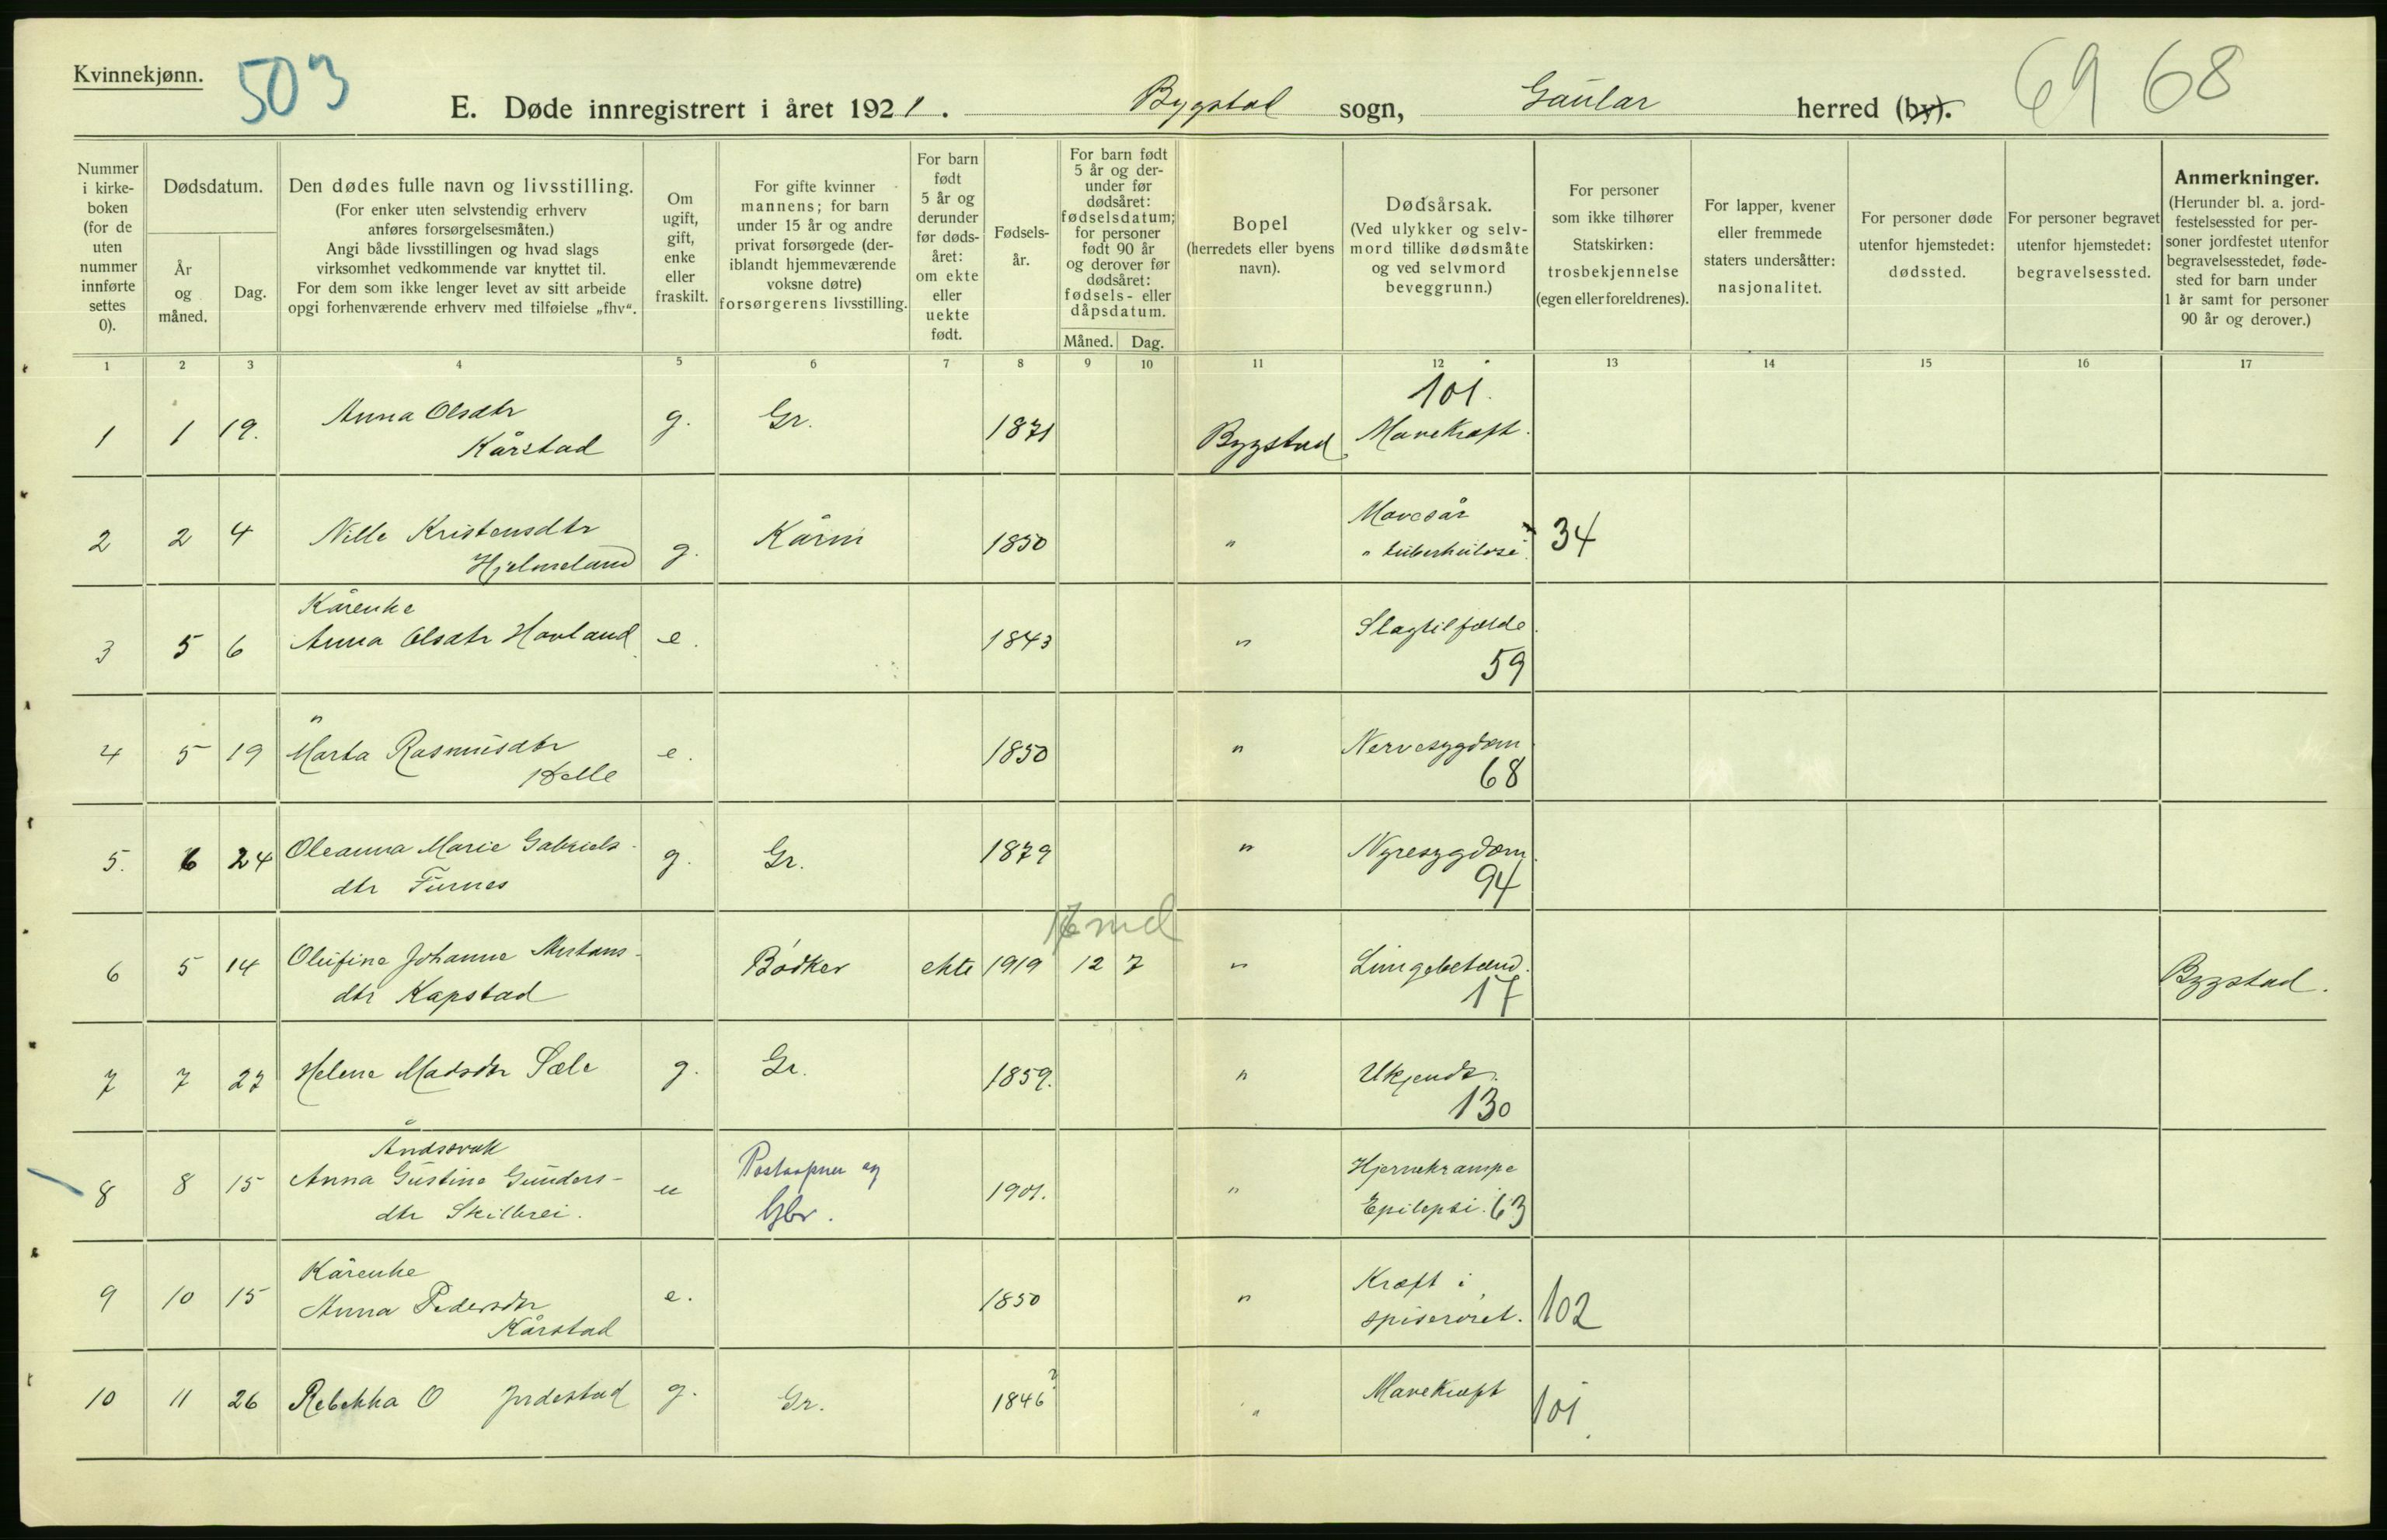 Kvinnekjønn.
503
E. Døde innregistrert i året 1921. Bygstad sogn, Gaular herred (by).
69 68
Nummer i kirke-boken (for de uten nummer innførte settes 0).
Dødsdatum.
År og måned.
Dag.
Den dødes fulle navn og livsstilling.
(For enker uten selvstendig erhverv
anføres forsørgelsesmåten.)
Angi både livsstillingen og hvad slags
virksomhet vedkommende var knyttet til.
For dem som ikke lenger levet av sitt arbeide
opgi forhenværende erhverv med tilføielse „fhv“.
Om ugift, gift, enke eller fraskilt.
For gifte kvinner
mannens; for barn
under 15 år og andre
privat forsørgede (der-
iblandt hjemmeværende
voksne døtre)
forsørgerens livsstilling.
For barn født 5 år og derunder før døds-året: om ekte eller uekte født.
Fødsels-år.
For barn født
5 år og der-
under før
dødsåret:
fødselsdatum;
for personer
født 90 år
og derover før
dødsåret:
fødsels- eller
dåpsdatum.
Måned. Dag.
Bopel
(herredets eller byens
navn).
Dødsårsak.
(Ved ulykker og selv-
mord tillike dødsmåte
og ved selvmord
beveggrunn.)
For personer
som ikke tilhører
Statskirken:
trosbekjennelse
(egen eller foreldrenes).
For lapper, kvener
eller fremmede
staters undersåtter:
nasjonalitet.
For personer døde
utenfor hjemstedet:
dødssted.
For personer begravet
utenfor hjemstedet:
begravelsessted.
Anmerkninger.
(Herunder bl. a. jord-
festelsessted for per-
soner jordfestet utenfor
begravelsesstedet, føde-
sted for barn under
1 år samt for personer
90 år og derover.)
1 2 3 4 5 6 7 8 9 10 11 12 13 14 15 16 17
101.
1 1 19. Anna Olsdtr g. Gr. 1871 Bygstad Mavekræft.
Kårstad
2 2 4 Nille Kristensdtr g. Kårm 1850 " Mavesår
Hjelmeland " tuberkulose. 34
Kårenke
3 5 6 Anna Olsdtr Hovland e. 1843 " Slagtilfælde.
59
"
4 5 19 Marta Rasmusdtr e. 1850 " Nervesygdom.
68
5. 6 24 Oleanna Marie Gabriels- g. Gr. 1879 " Nyresygdom.
dtr Furnes 94
md
6 5 14 Olufine Johanne Mertens- Bødker ekte 1919 12 7 " Lungebetænd. Bygstad.
dtr Kapstad 17
7 7 27 Helene Madsdtr Sæle g. Gr. 1859. " Ukjendt.
130
Åndssvak
8 8 15 Anna Gustine Gunders- u Postaapner og 1901. " Hjernekrampe
dtr Skilbrei. Gbr. Epilepsi. 63
Kårenke
9 10 15 Anna Pedersdtr e. 1850 " Kræft i
Kårstad spiserøret. 102
10 11 26 Rebekka O Jordestad g. Gr. 1846? " Mavekræft 101